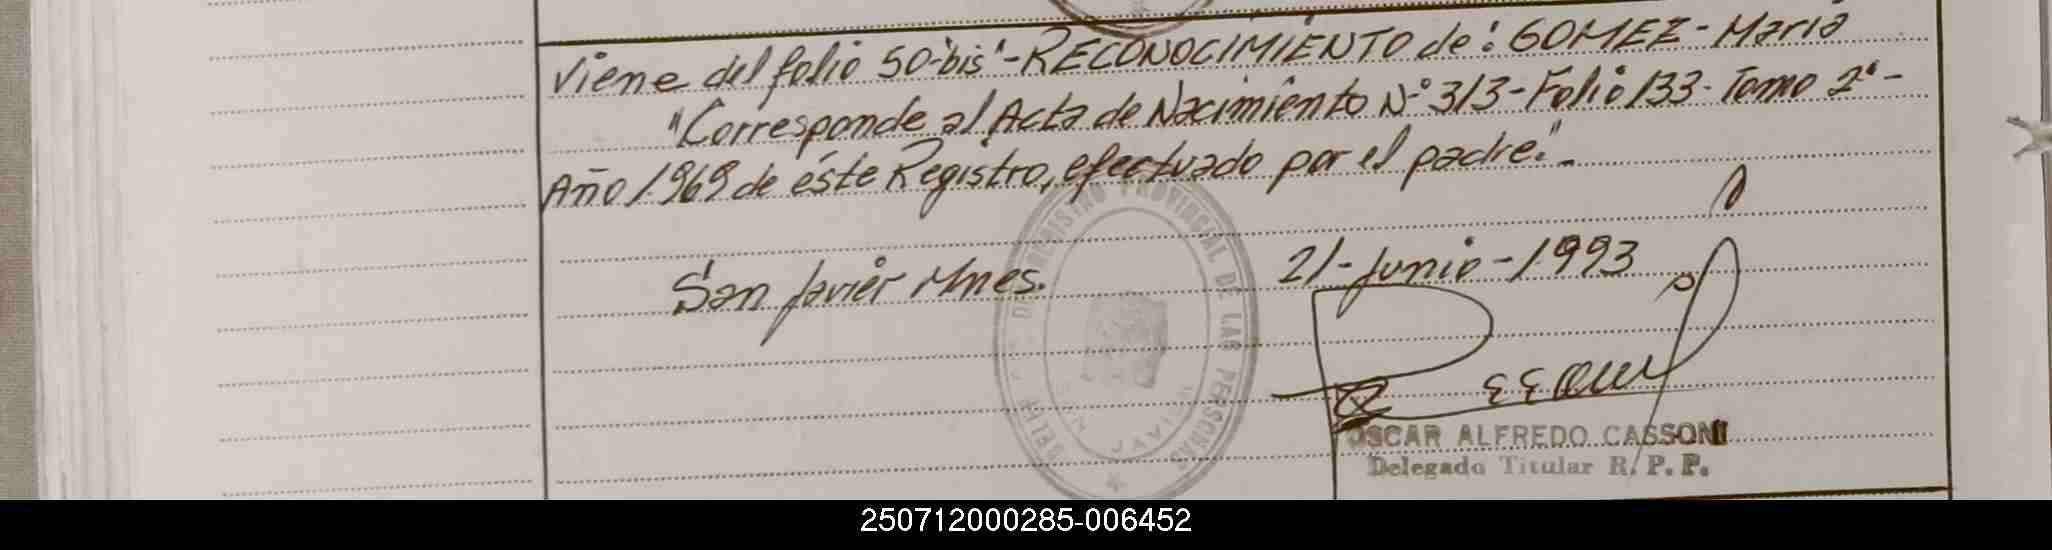 Viene del folio 50 "bis" - RECONOCIMIENTO de: GOMEZ - Maria
"Corresponde al Acta de Nacimiento N° 313 - Folio 133 - Tomo 2° -
Año 1969 de éste Registro, efectuado por el padre." -
San Javier Mnes. 21 - Junio - 1993
REGISTRO PROVINCIAL DE LAS PERSONAS
SAN JAVIER
OSCAR ALFREDO CASSONI
Delegado Titular R. P. P.
250712000285-006452